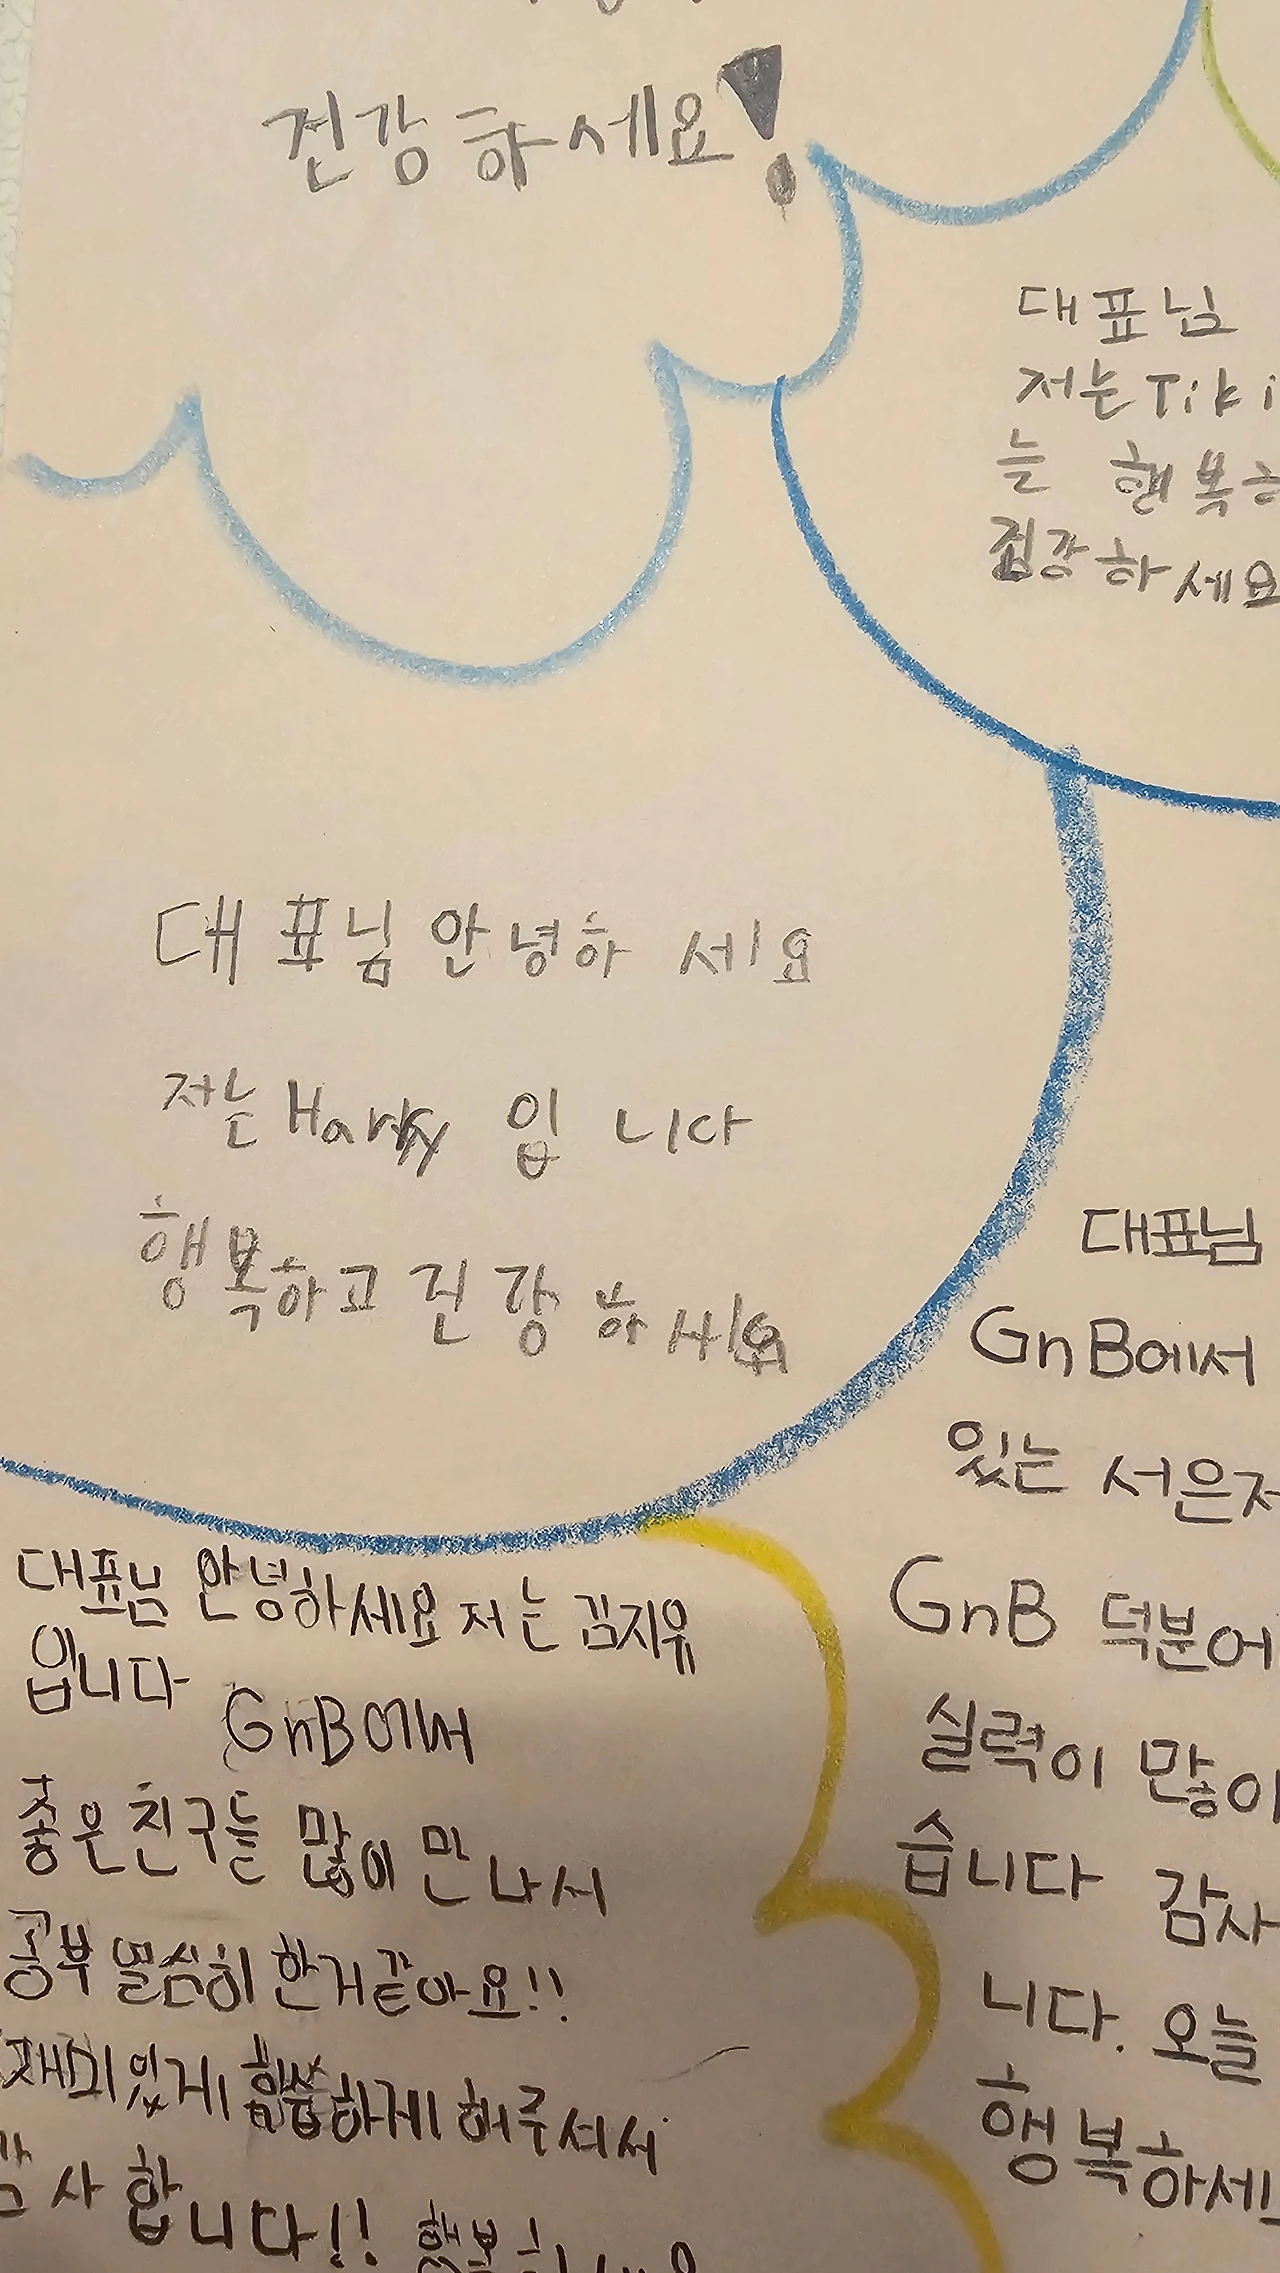 건강하세요!
대표님
저는 Tiki
늘 행복하
건강하세요
대표님 안녕하세요
저는 Harry 입니다
행복하고 건강하세요
대표님
GnB에서
있는 서은
GnB 덕분에
실력이 많이
습니다 감사
니다. 오늘
행복하세
대표님 안녕하세요 저는 김지유
입니다
GnB에서
좋은 친구들 많이 만나서
공부 열심히 한거 끝아요!!
재미있게 하게 해주셔서
감사합니다!!